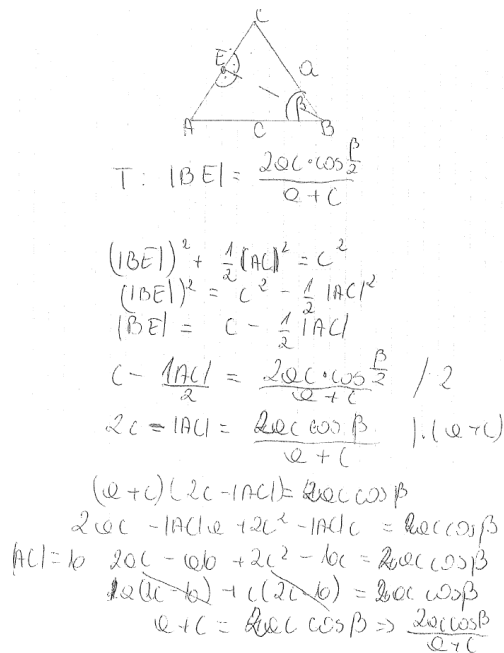 C
E
a
β
A
c
B
T: |BE| = 2ac·cos β/2 / a+c
(|BE|)² + 1/2 |AC|² = c²
(|BE|)² = c² - 1/2 |AC|²
|BE| = c - 1/2 |AC|
c - |AC|/2 = 2ac·cos β/2 / a+c /·2
2c - |AC| = 2ac cos β / a+c |·(a+c)
(a+c)(2c-|AC|) = 2ac cos β
2ac - |AC|a + 2c² - |AC|c = 2ac cos β
|AC| = b 2ac - ab + 2c² - bc = 2ac cos β
a(2c-b) + c(2c-b) = 2ac cos β
a+c = 2ac cos β => 2ac cos β / a+c